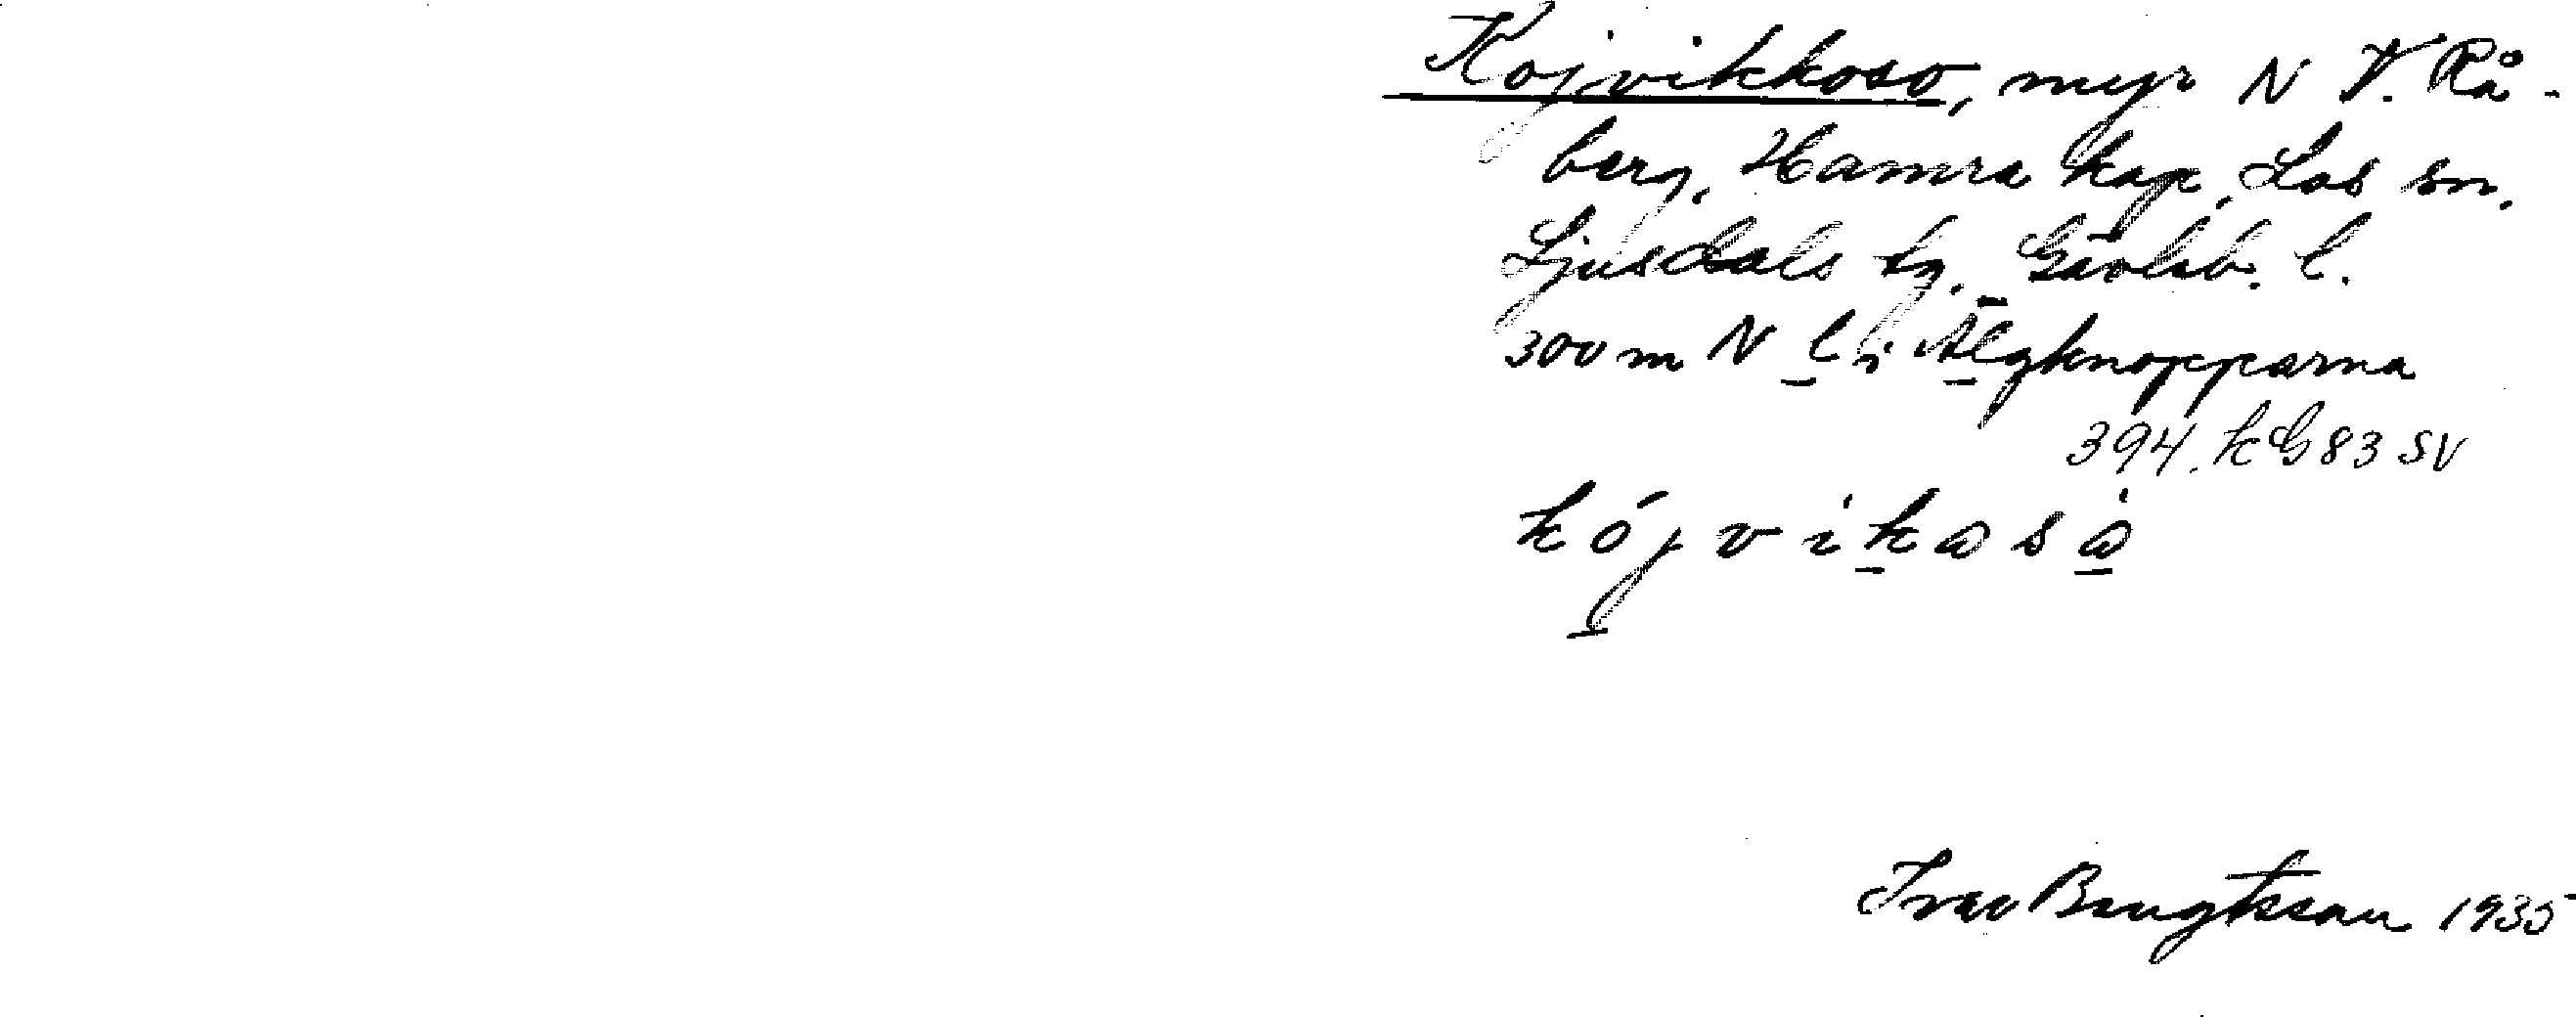 Kojvikkoso, myr N V. Rå-
berg, Hamra kap, Los sn.
Ljusdals tg. Gävleb. l.
300 m N l i Älgknopparna
394. k G 83 SV
kójvikasà
Ivar Bengtsson 1935